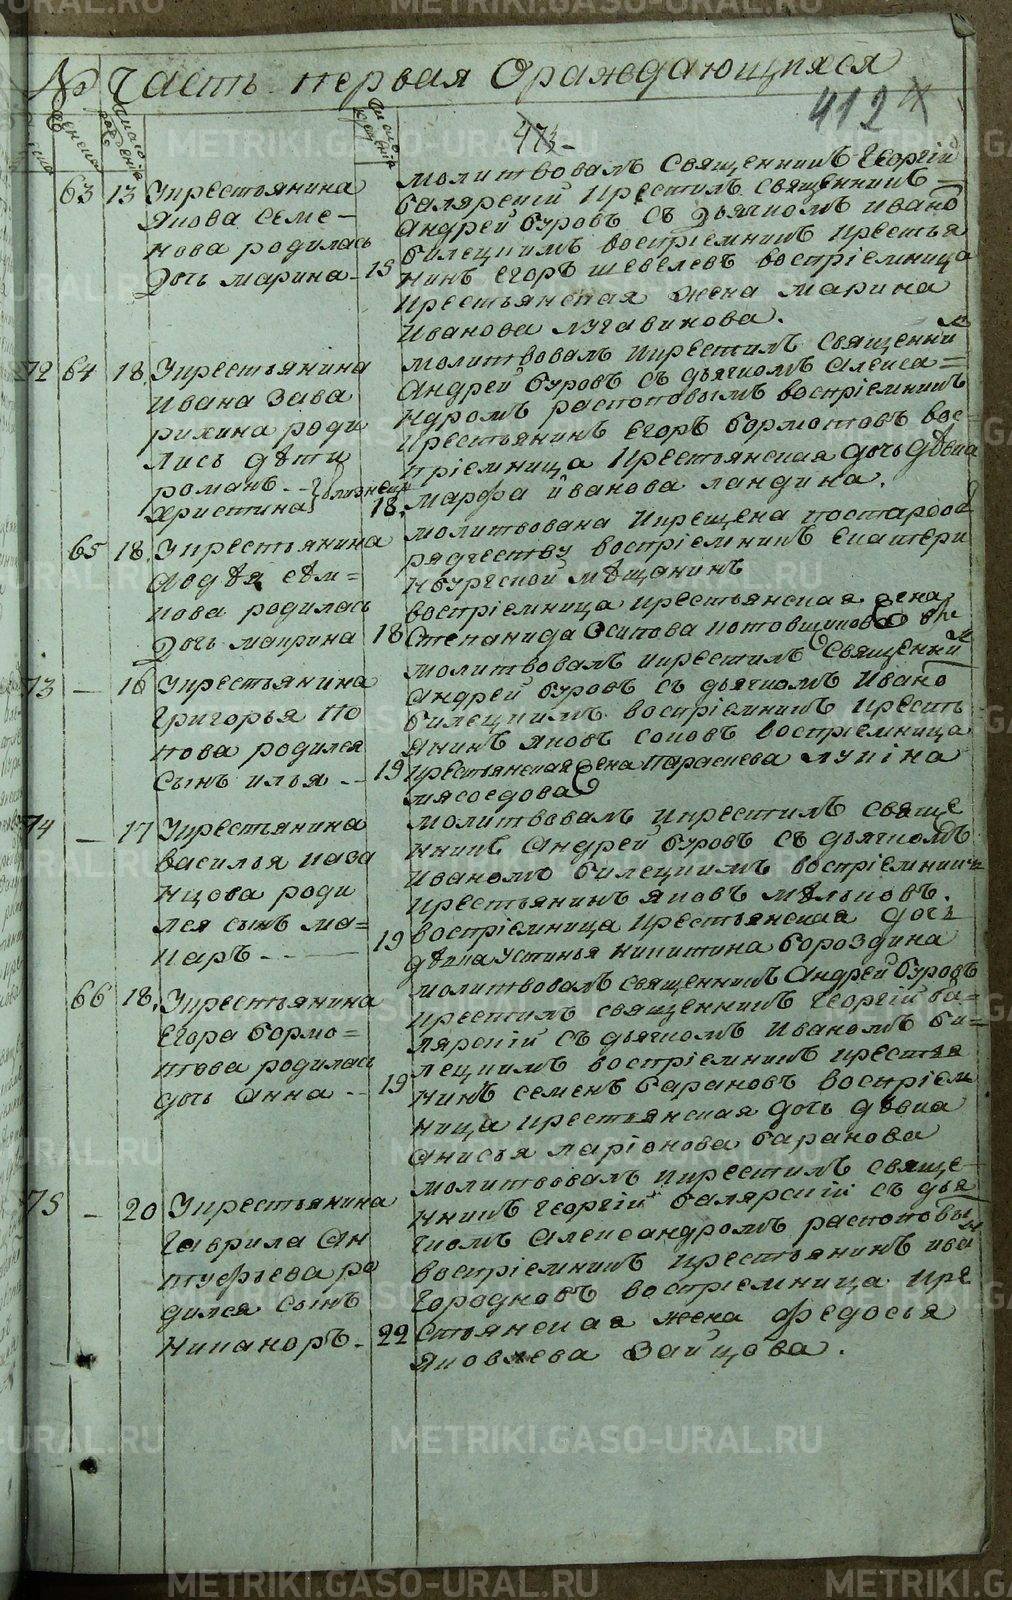 № Часть первая Ораждающихся
412
473
63 13 Укрестьянина
Якова Семе-
нова родилась
Дочь марина - 15
молитвовалъ священникъ Георгій
балярскій крестилъ священникъ
Андрей буровъ съ дьячкомъ ивано
билецкимъ воспріемникъ крестья
нинъ Егоръ шевелевъ воспріемница
крестьянская жена марина
Иванова лугавинова.
72 64 18. Укрестьянина
Ивана Зава
рихина роди
лись дѣти
романъ - близнецы
христина 18.
молитвовалъ икрестилъ священни
Андрей буровъ съ дьячкомъ Алекса=
ндромъ распоповымъ воспріемникъ
крестьянинъ Егоръ бормотовъ вос-
пріемница крестьянская дочь дѣвка
марфа иванова ландина.
65 18. Укрестьянина
Авдѣя сѣм=
кова родилась
Дочь матрина 18
молитвована икрещена постаросо
рядчеству воспріемникъ Екатери
нбургской мѣщанинъ
воспріемница крестьянская жена
Степанида Осипова котовщикова
73 — 16 Укрестьянина
Григорья по
пова родился
Сынъ илья -- 19
молитвовалъ икрестилъ Священни
Андрей буровъ съ дьячкомъ Ивано
билецкимъ воспріемникъ кресть
янинъ яковъ соковъ воспріемница
крестьянская жена Параскева лукіна
мясоедова
74 — 17 Укрестьянина
василья каза
нцова роди
лся сынъ ма=
каръ -- 19
молитвовалъ икрестилъ свяще
нникъ Андрей буровъ съ дьячкомъ
Иваномъ билецкимъ воспріемник
крестьянинъ яковъ мѣльковъ.
воспріемница крестьянская дочь
дѣвка Устинья никитина бороздина
66 18. Укрестьянина
Егора бормо=
това родилась
дочь Анна -- 19
молитвовалъ священникъ Андрей буровъ
крестилъ священникъ Георгій ба=
лярскій съ дьячкомъ Иваномъ би=
лецкимъ воспріемникъ крестья
нинъ семенъ барановъ воспріем
ница крестьянская дочь дѣвка
Анисья ларіонова баранова
75 — 20 Укрестьянина
Гаврила Ан
туфьева ро
дился сынъ
Никаноръ - 22
молитвовалъ икрестилъ свяще-
нникъ Георгій балярскій съ дья
чкомъ Александромъ распоповы
воспріемникъ крестьянинъ ива
Городновъ воспріемница кре
стьянская жена федосья
яковлева Зайцова.
METRIKI.GASO-URAL.RU